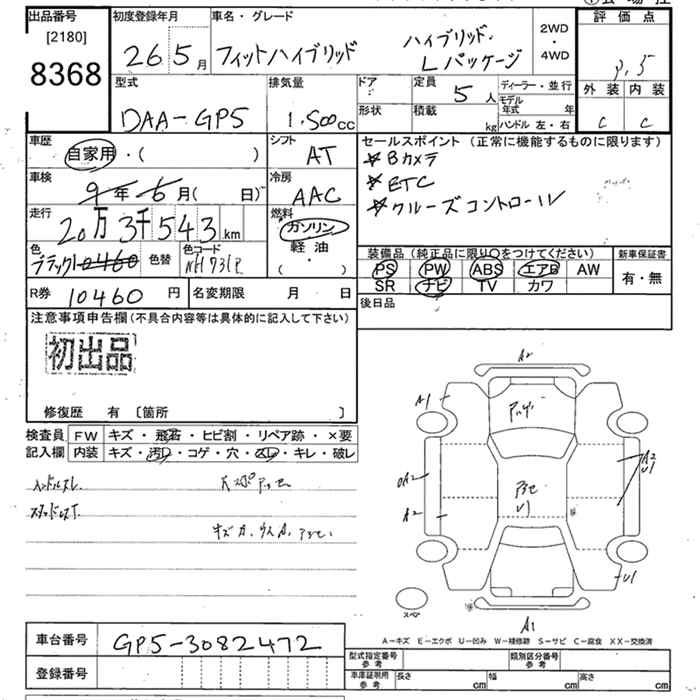 出品番号
[2180]
8368
初度登録年月
26年5月
車名・グレード
フィットハイブリッド
ハイブリッド・
Lパッケージ
2WD
・
4WD
評価点
3.5
外装 内装
C C
型式
DAA-GP5
排気量
1.500cc
ドア
定員
5人
ディーラー・並行
形状
積載
kg
モデル年式 年
ハンドル 左・右
車歴
自家用・( )
シフト
AT
車検
9年6月( 日)
冷房
AAC
走行
20万3千543km
燃料
ガソリン
軽油
・
( )
色
ブラック
10460
色替
色コード
NH731P
セールスポイント (正常に機能するものに限ります)
*Bカメラ
*ETC
*クルーズコントロール
装備品 (純正品に限り○をつけてください)
新車保証書
PS PW ABS エアB AW
SR ナビ TV カワ
有・無
R券 10460円
名変期限 月 日
後日品
注意事項申告欄(不具合内容等は具体的に記入して下さい)
初出品
修復歴 有 〔箇所 〕
検査員
記入欄
FW キズ・飛石・ヒビ割・リペア跡・×要
内装 キズ・汚レ・コゲ・穴・スレ・キレ・破レ
ハンドルスレ
A2
A1
A2
U1
A2
A2
U1
U1
スペア
A1
A-キズ E-エクボ U-凹み W-補修跡 S-サビ C-腐食 XX-交換済
車台番号
GP5-3082472
登録番号
型式指定番号
参考
類別区分番号
参考
車庫証明用
参考
長さ cm
幅 cm
高さ cm